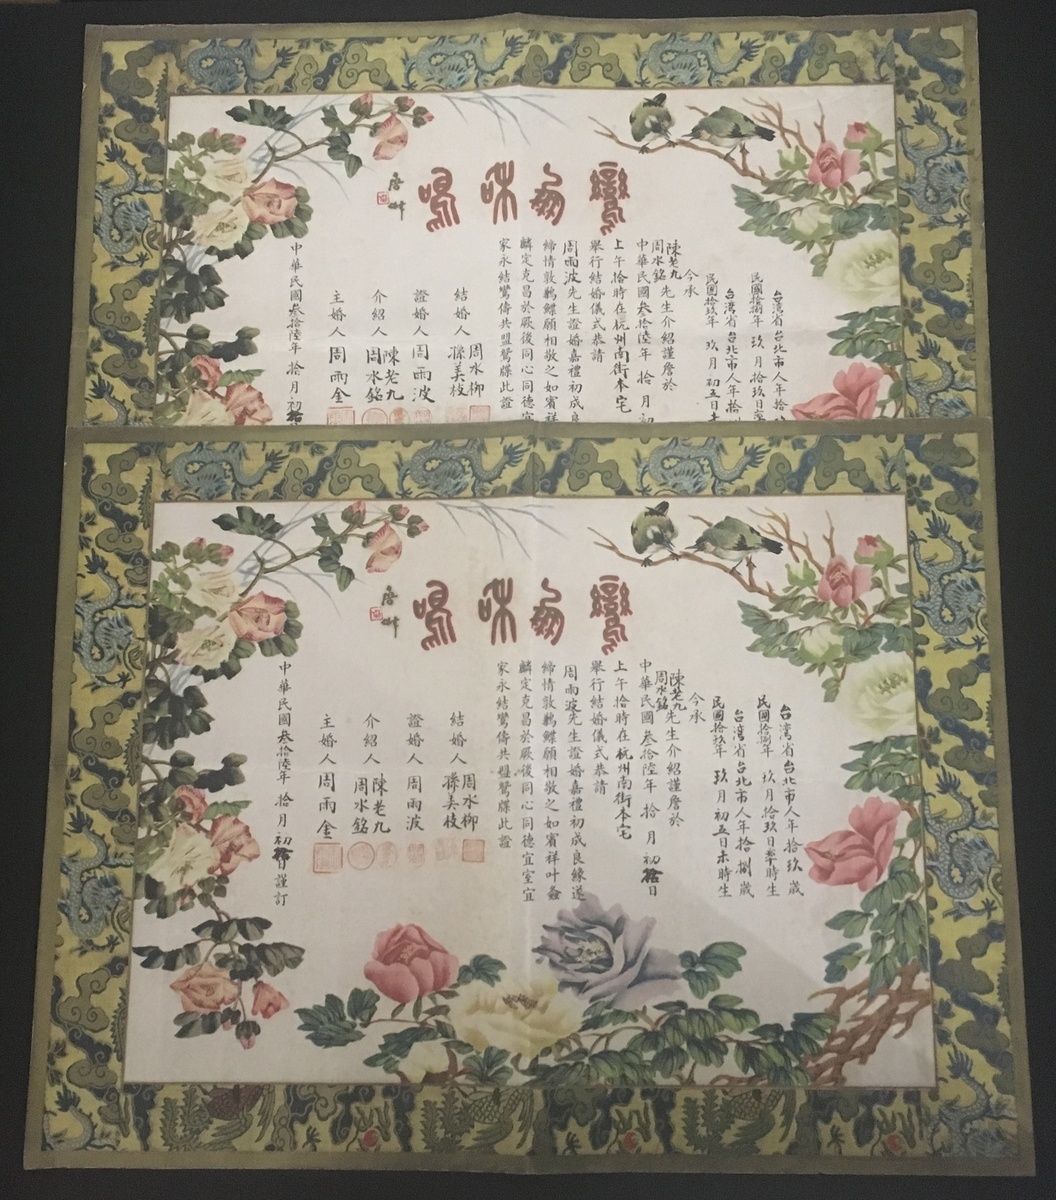 鸞鳳和鳴
台湾省台北市人年拾
民國拾捌年 玖月拾玖日
台湾省台北市人年拾
民國拾玖年 玖月初五日未
今承
陳老九
周水銘 先生介紹謹詹於
中華民國叁拾陸年 拾 月 初
上午拾時在杭州南街本宅
舉行結婚儀式恭請
周雨波先生證婚嘉禮初成良
締情敦鶼鰈願相敬之如賓祥
麟定克昌於厥後同心同德宜
家永結鸞儔共盟鴛牒此證
結婚人 周水柳
孫美枝
證婚人 周雨波
介紹人 陳老九
周水銘
主婚人 周雨金
中華民國叁拾陸年 拾 月 初
鸞鳳和鳴
台湾省台北市人年拾玖歲
民國拾捌年 玖月拾玖日時生
台湾省台北市人年拾捌歲
民國拾玖年 玖月初五日未時生
今承
陳老九
周水銘 先生介紹謹詹於
中華民國叁拾陸年 拾 月 初拾日
上午拾時在杭州南街本宅
舉行結婚儀式恭請
周雨波先生證婚嘉禮初成良緣遂
締情敦鶼鰈願相敬之如賓祥叶螽
麟定克昌於厥後同心同德宜室宜
家永結鸞儔共盟鴛牒此證
結婚人 周水柳
孫美枝
證婚人 周雨波
介紹人 陳老九
周水銘
主婚人 周雨金
中華民國叁拾陸年 拾 月 初拾日謹訂